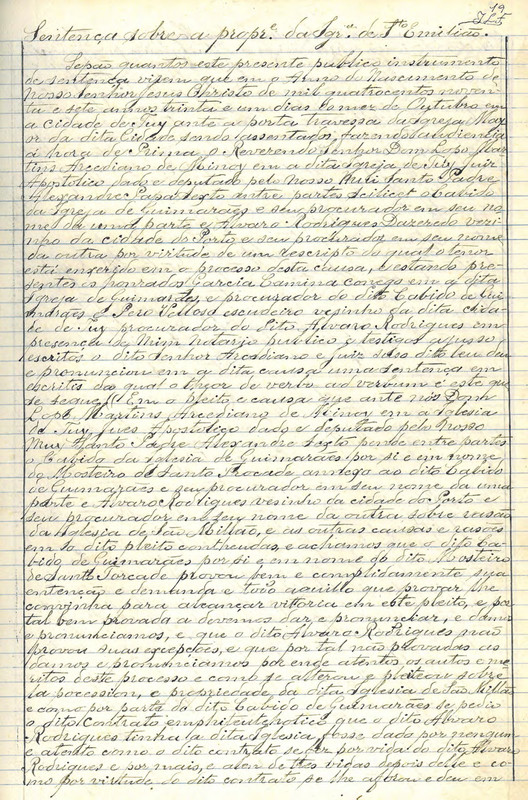 19
Sentença sobre a propr.e da Igr.a de S.to Emilião.
Sepão quantos este presente publico instrumento
de sentença virem que em o Anno do Nascimento de
Nosso Senhor Jesus Christo de mil quatrocentos noven-
ta e sete annos trinta e um dias do mez de Outubro em
a cidade de Tuy ante a porta travessa da Igreja May-
or da dita Cidade sendo assentados, fazendo audiencia
á hora de Prima, o Reverendo Senhor Dom Lopo Mar-
tins Arcediano de Minoy em a dita Igreja de Tuy Juiz
Apostolico dado e deputado pelo Nosso Muti Santo Padre
Alexandre Papa Sexto antre partes scilicet o Cabido
da Igreja de Guimarães e seu procurador em seu no-
me da uma parte e Alvaro Rodrigues Dazeredo vezi-
nho da cidade do Porto e seu procurador em seu nome
da outra por virtude de um rescripto do qual o tenor
está inxerido em o processo desta causa, e estando pre-
sentes os honrados Garcia Camina conego em a dita
Igreja de Guimarães, e procurador do dito Cabido de Gui-
marães e Pero Velloso escudeiro vesinho da dita cida-
de de Tuy procurador do dito Alvaro Rodrigues em
presença de Mim Notario publico e testigos ajuso
escritos o dito Senhor Arcediano e juiz suso dito leu deu
e pronunciou em a dita causa uma sentença em
escritis da qual o theor de verbo ad verbum é este que
se segue. Em o pleito e causa que ante nós Dom
Lopo Martins Arcediano de Minoy em a Iglesia
de Tuy, Jues Apostolico dado e deputado pelo Nosso
Muy Santo Padre Alexandre Sexto pende entre partes
o Cabido da Iglesia de Guimarães por si e em nome
do Mosteiro de Santo Trocade annexo ao dito Cabido
de Guimarães e seu procurador em seu nome da uma
parte e Alvaro Rodrigues vesinho da cidade do Porto e
seu procurador em seu nome da outra sobre rezão
da Iglesia de São Millão, e as outras causas e rasões
em lo dito pleito contheudas, e achamos que o dito Ca-
bido de Guimarães por si e em nome do dito Mosteiro
de Santo Torcade provou bem e complidamente sua
entenção e demanda e todo aquillo que provar lhe
convinha para alcançar vittoria em este pleito, e por
tal bem provada a devemos dar e pronunciar, e damos
e pronunciamos, e que o dito Alvaro Rodrigues não
provou suas excepções, e que por tal não provadas as
damos e pronunciamos por ende atentos os autos e me-
ritos deste processo e como se alterou e pleiteou sobre
la pocession, e propriedade da dita Iglesia de São Millão
e como por parte do dito Cabido de Guimarães se pedio
o dito Contrato emphiteutigotico que o dito Alvaro
Rodrigues tinha da dita Iglesia fosse dado por nengum
e atento como o dito contrato se fez por vida do dito Alvaro
Rodrigues e por mais, e alen de tres vidas depois delle e co-
mo por virtude do dito contrato se lhe aforou e deu em